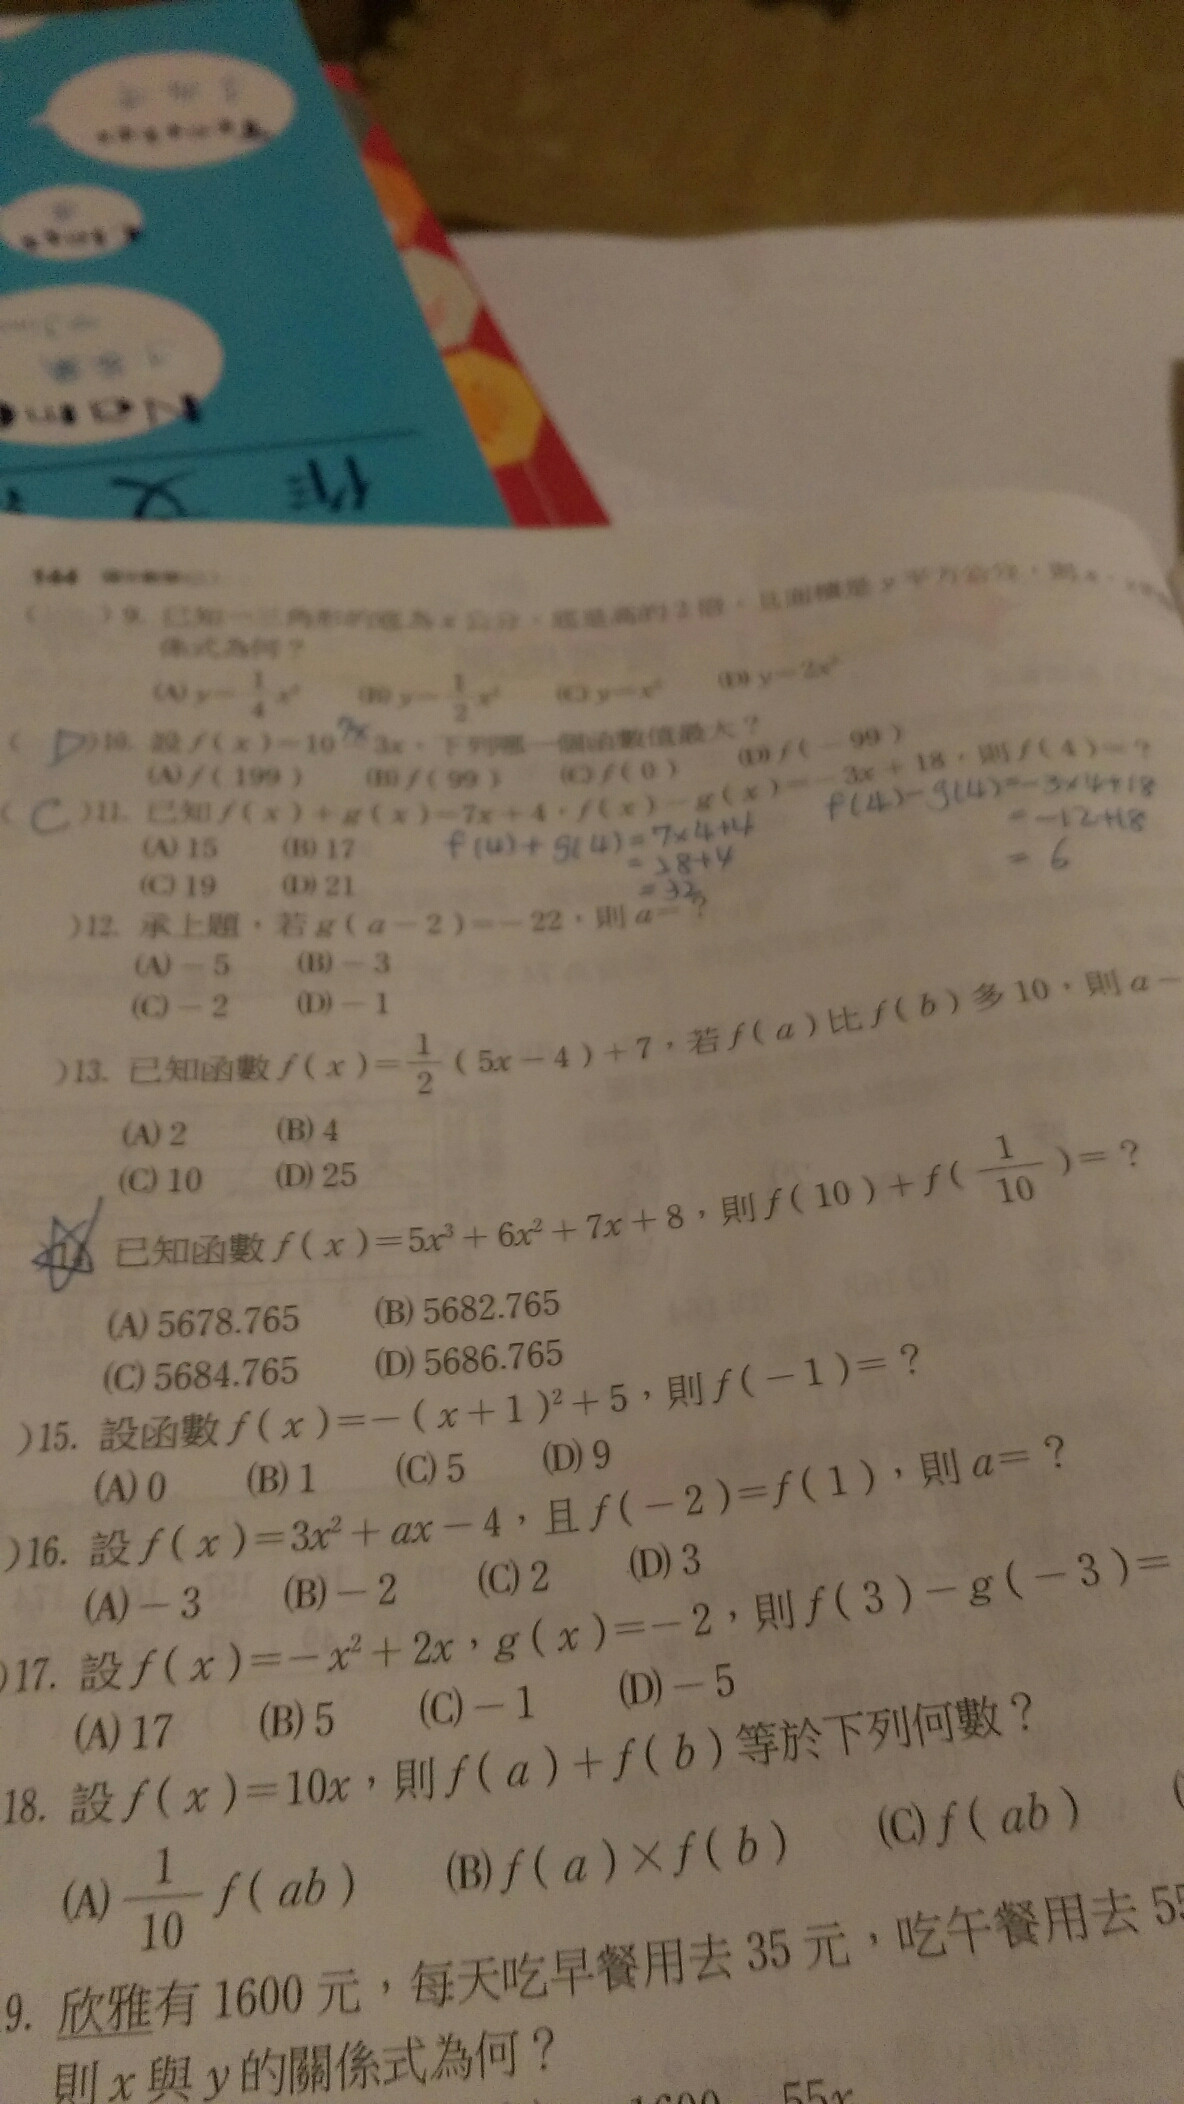 作文
144
( )9. 已知一三角形的底為 x 公分，底是高的 2 倍，且面積是 y 平方公分，則 x、
係式為何？
(A) y=1/4 x² (B) y=1/2 x² (C) y=x² (D) y=2x²
( D )10. 設 f(x)=10 3x，下列哪一個函數值最大？
(A) f(199) (B) f(99) (C) f(0) (D) f(-99)
( C )11. 已知 f(x)+g(x)=7x+4，f(x)-g(x)=-3x+18，則 f(4)=？
(A) 15 (B) 17
(C) 19 (D) 21
f(4)+g(4)=7×4+4
=28+4
=32
f(4)-g(4)=-3×4+18
=-12+18
=6
)12. 承上題，若 g(a-2)=-22，則 a=？
(A) -5 (B) -3
(C) -2 (D) -1
)13. 已知函數 f(x)=1/2(5x-4)+7，若 f(a) 比 f(b) 多 10，則 a-
(A) 2 (B) 4
(C) 10 (D) 25
已知函數 f(x)=5x³+6x²+7x+8，則 f(10)+f(1/10)=？
(A) 5678.765 (B) 5682.765
(C) 5684.765 (D) 5686.765
)15. 設函數 f(x)=-(x+1)²+5，則 f(-1)=？
(A) 0 (B) 1 (C) 5 (D) 9
)16. 設 f(x)=3x²+ax-4，且 f(-2)=f(1)，則 a=？
(A) -3 (B) -2 (C) 2 (D) 3
)17. 設 f(x)=-x²+2x，g(x)=-2，則 f(3)-g(-3)=
(A) 17 (B) 5 (C) -1 (D) -5
18. 設 f(x)=10x，則 f(a)+f(b) 等於下列何數？
(A) 1/10 f(ab) (B) f(a)×f(b) (C) f(ab) (
9. 欣雅有 1600 元，每天吃早餐用去 35 元，吃午餐用去 55
則 x 與 y 的關係式為何？
1600 55x